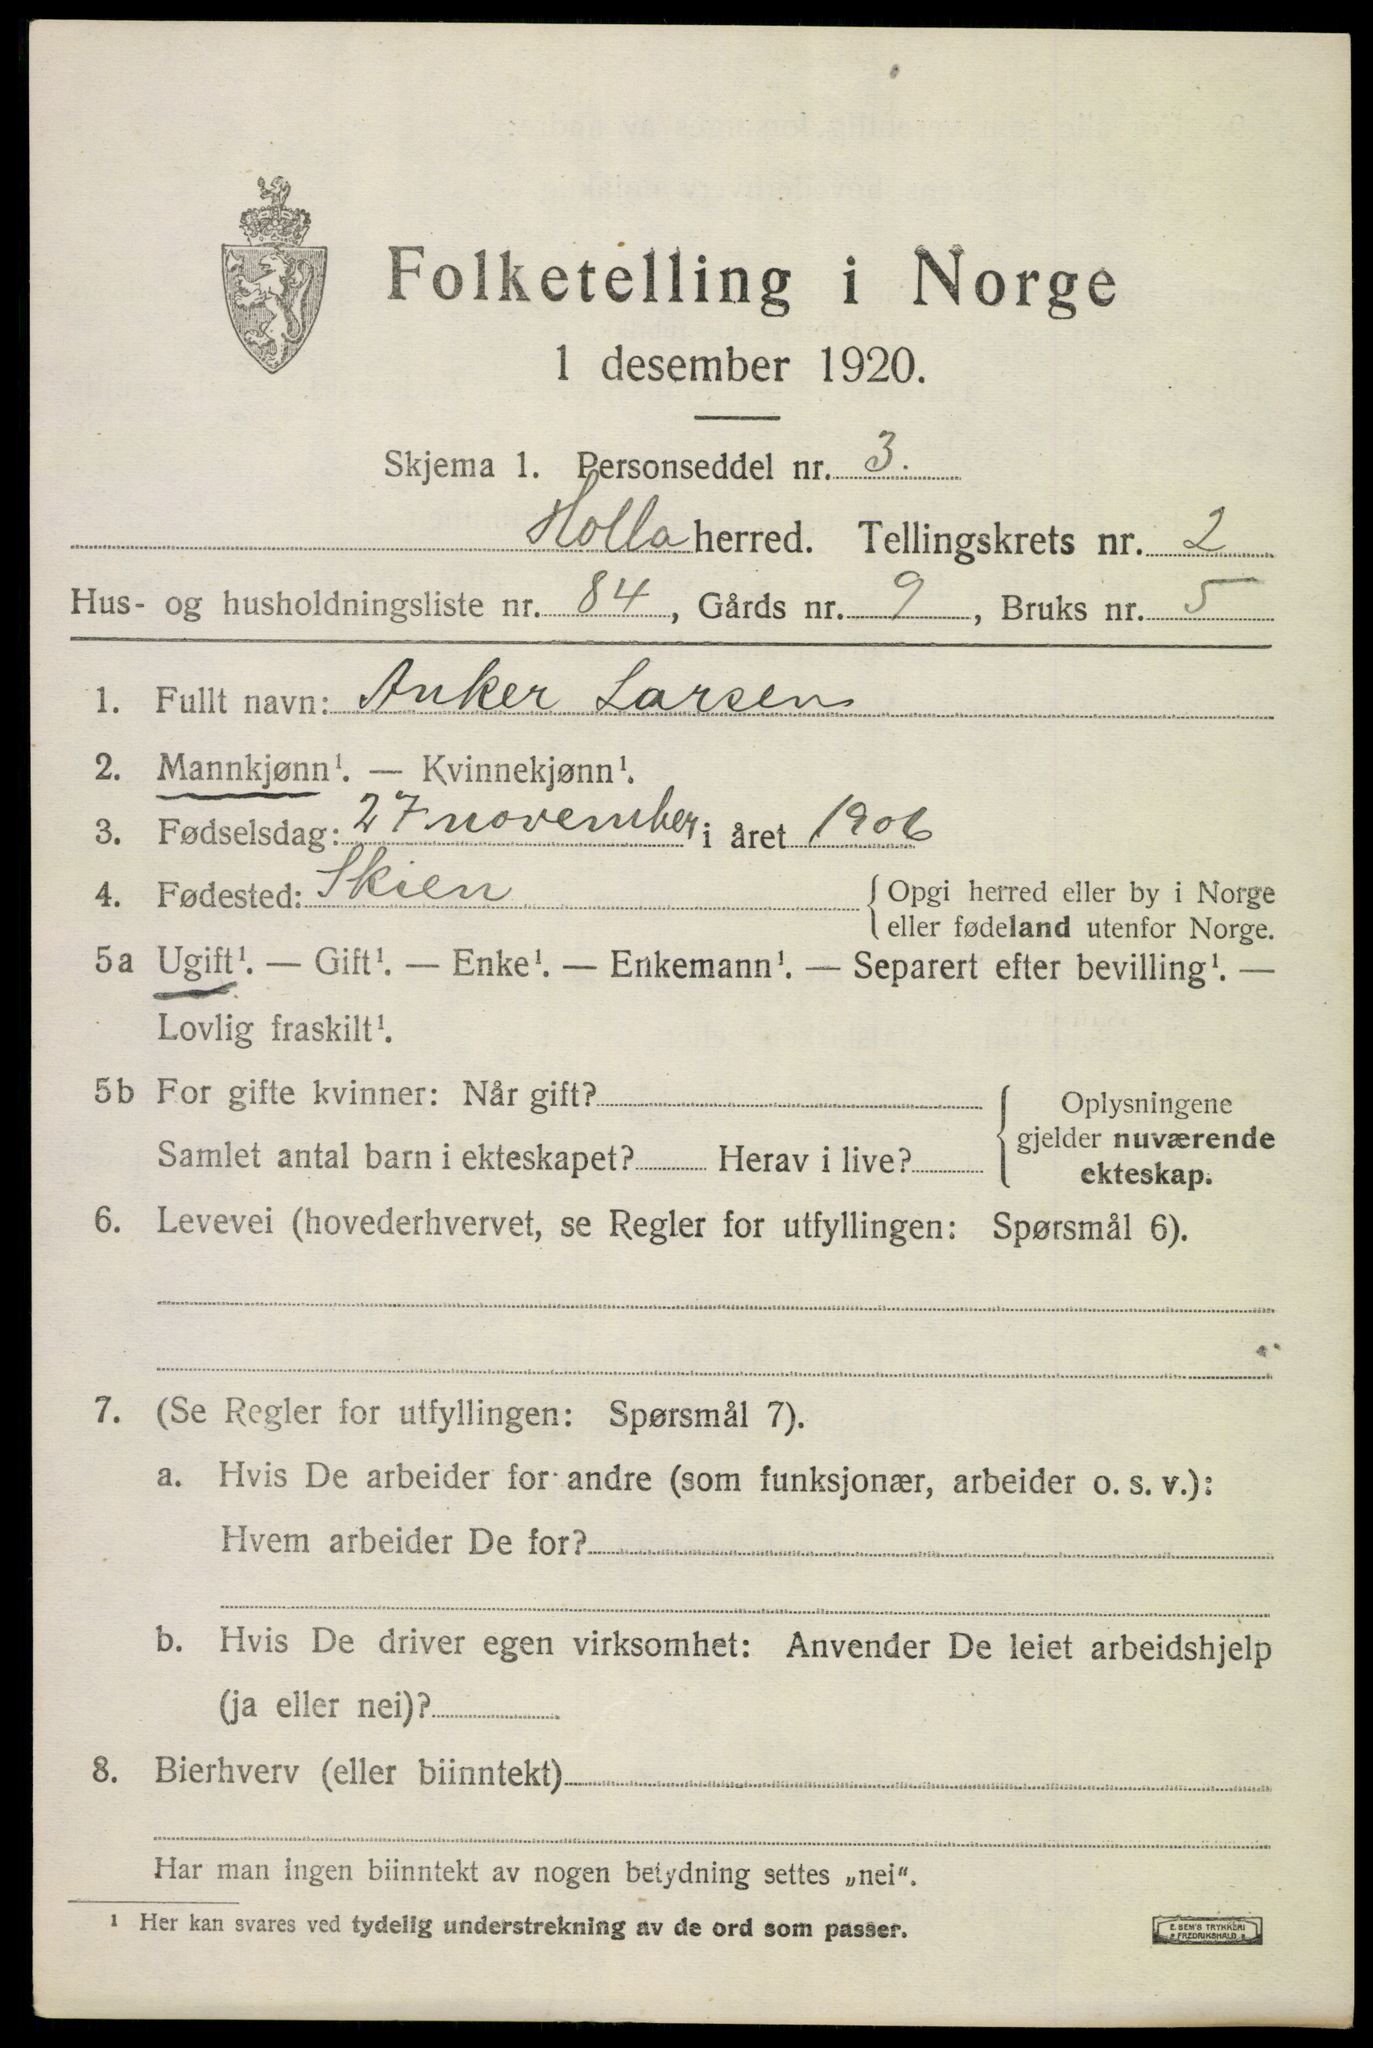 Folketelling i Norge
1 desember 1920.
Skjema 1. Personseddel nr. 3.
Holla herred. Tellingskrets nr. 2
Hus- og husholdningsliste nr. 84, Gårds nr. 9, Bruks nr. 5
1. Fullt navn: Anker Larsen
2. Mannkjønn¹. — Kvinnekjønn¹.
3. Fødselsdag: 27 november i året 1906
4. Fødested: Skien {Opgi herred eller by i Norge
eller fødeland utenfor Norge.
5a Ugift¹. — Gift¹. — Enke¹. — Enkemann¹. — Separert efter bevilling¹. —
Lovlig fraskilt¹.
5b For gifte kvinner: Når gift? { Oplysningene
gjelder nuværende
Samlet antal barn i ekteskapet? Herav i live?
ekteskap.
6. Levevei (hovederhvervet, se Regler for utfyllingen: Spørsmål 6).
7. (Se Regler for utfyllingen: Spørsmål 7).
a. Hvis De arbeider for andre (som funksjonær, arbeider o. s. v.):
Hvem arbeider De for?
b. Hvis De driver egen virksomhet: Anvender De leiet arbeidshjelp
(ja eller nei)?
8. Bierhverv (eller biinntekt)
Har man ingen biinntekt av nogen betydning settes „nei“.
¹ Her kan svares ved tydelig understrekning av de ord som passer.
E. SEM'S TRYKKERI
FREDRIKSHALD